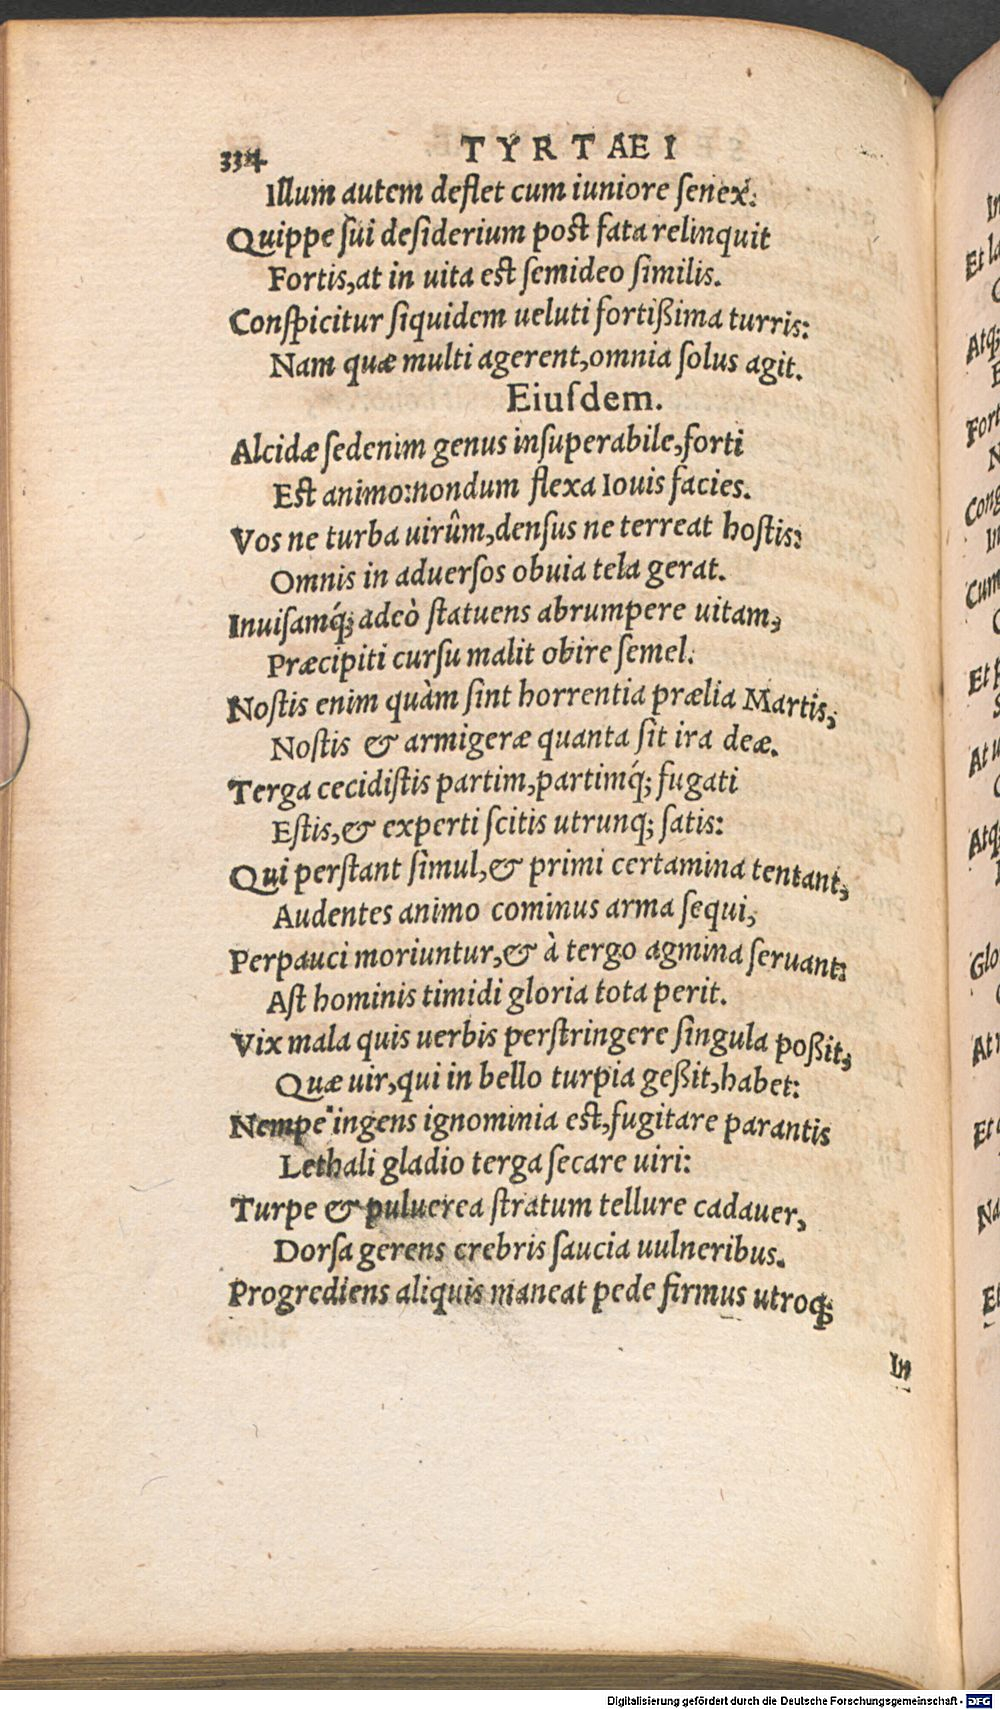 334 TYRTAEI
Illum autem deflet cum iuniore ſenex:
Quippe ſui deſiderium poſt fata relinquit
Fortis,at in uita eſt ſemideo ſimilis.
Conſpicitur ſiquidem ueluti fortißima turris:
Nam quæ multi agerent,omnia ſolus agit.
Eiuſdem.
Alcidæ ſedenim genus inſuperabile,forti
Eſt animo:nondum flexa Iouis facies.
Vos ne turba uirûm,denſus ne terreat hoſtis:
Omnis in aduerſos obuia tela gerat.
Inuiſamq́; adeò ſtatuens abrumpere uitam,
Præcipiti curſu malit obire ſemel.
Noſtis enim quàm ſint horrentia prælia Martis,
Noſtis & armigeræ quanta ſit ira deæ.
Terga cecidiſtis partim,partimq́; fugati
Eſtis,& experti ſcitis utrunq; ſatis:
Qui perſtant ſimul,& primi certamina tentant,
Audentes animo cominus arma ſequi,
Perpauci moriuntur,& à tergo agmina ſeruant:
Aſt hominis timidi gloria tota perit.
Vix mala quis uerbis perſtringere ſingula poßit,
Quæ uir,qui in bello turpia geßit,habet:
Nempe ingens ignominia eſt,fugitare parantis
Lethali gladio terga ſecare uiri:
Turpe & puluerea ſtratum tellure cadauer,
Dorſa gerens crebris ſaucia uulneribus.
Progrediens aliquis maneat pede firmus utroq;
In
Digitalisierung gefördert durch die Deutsche Forschungsgemeinschaft - DFG